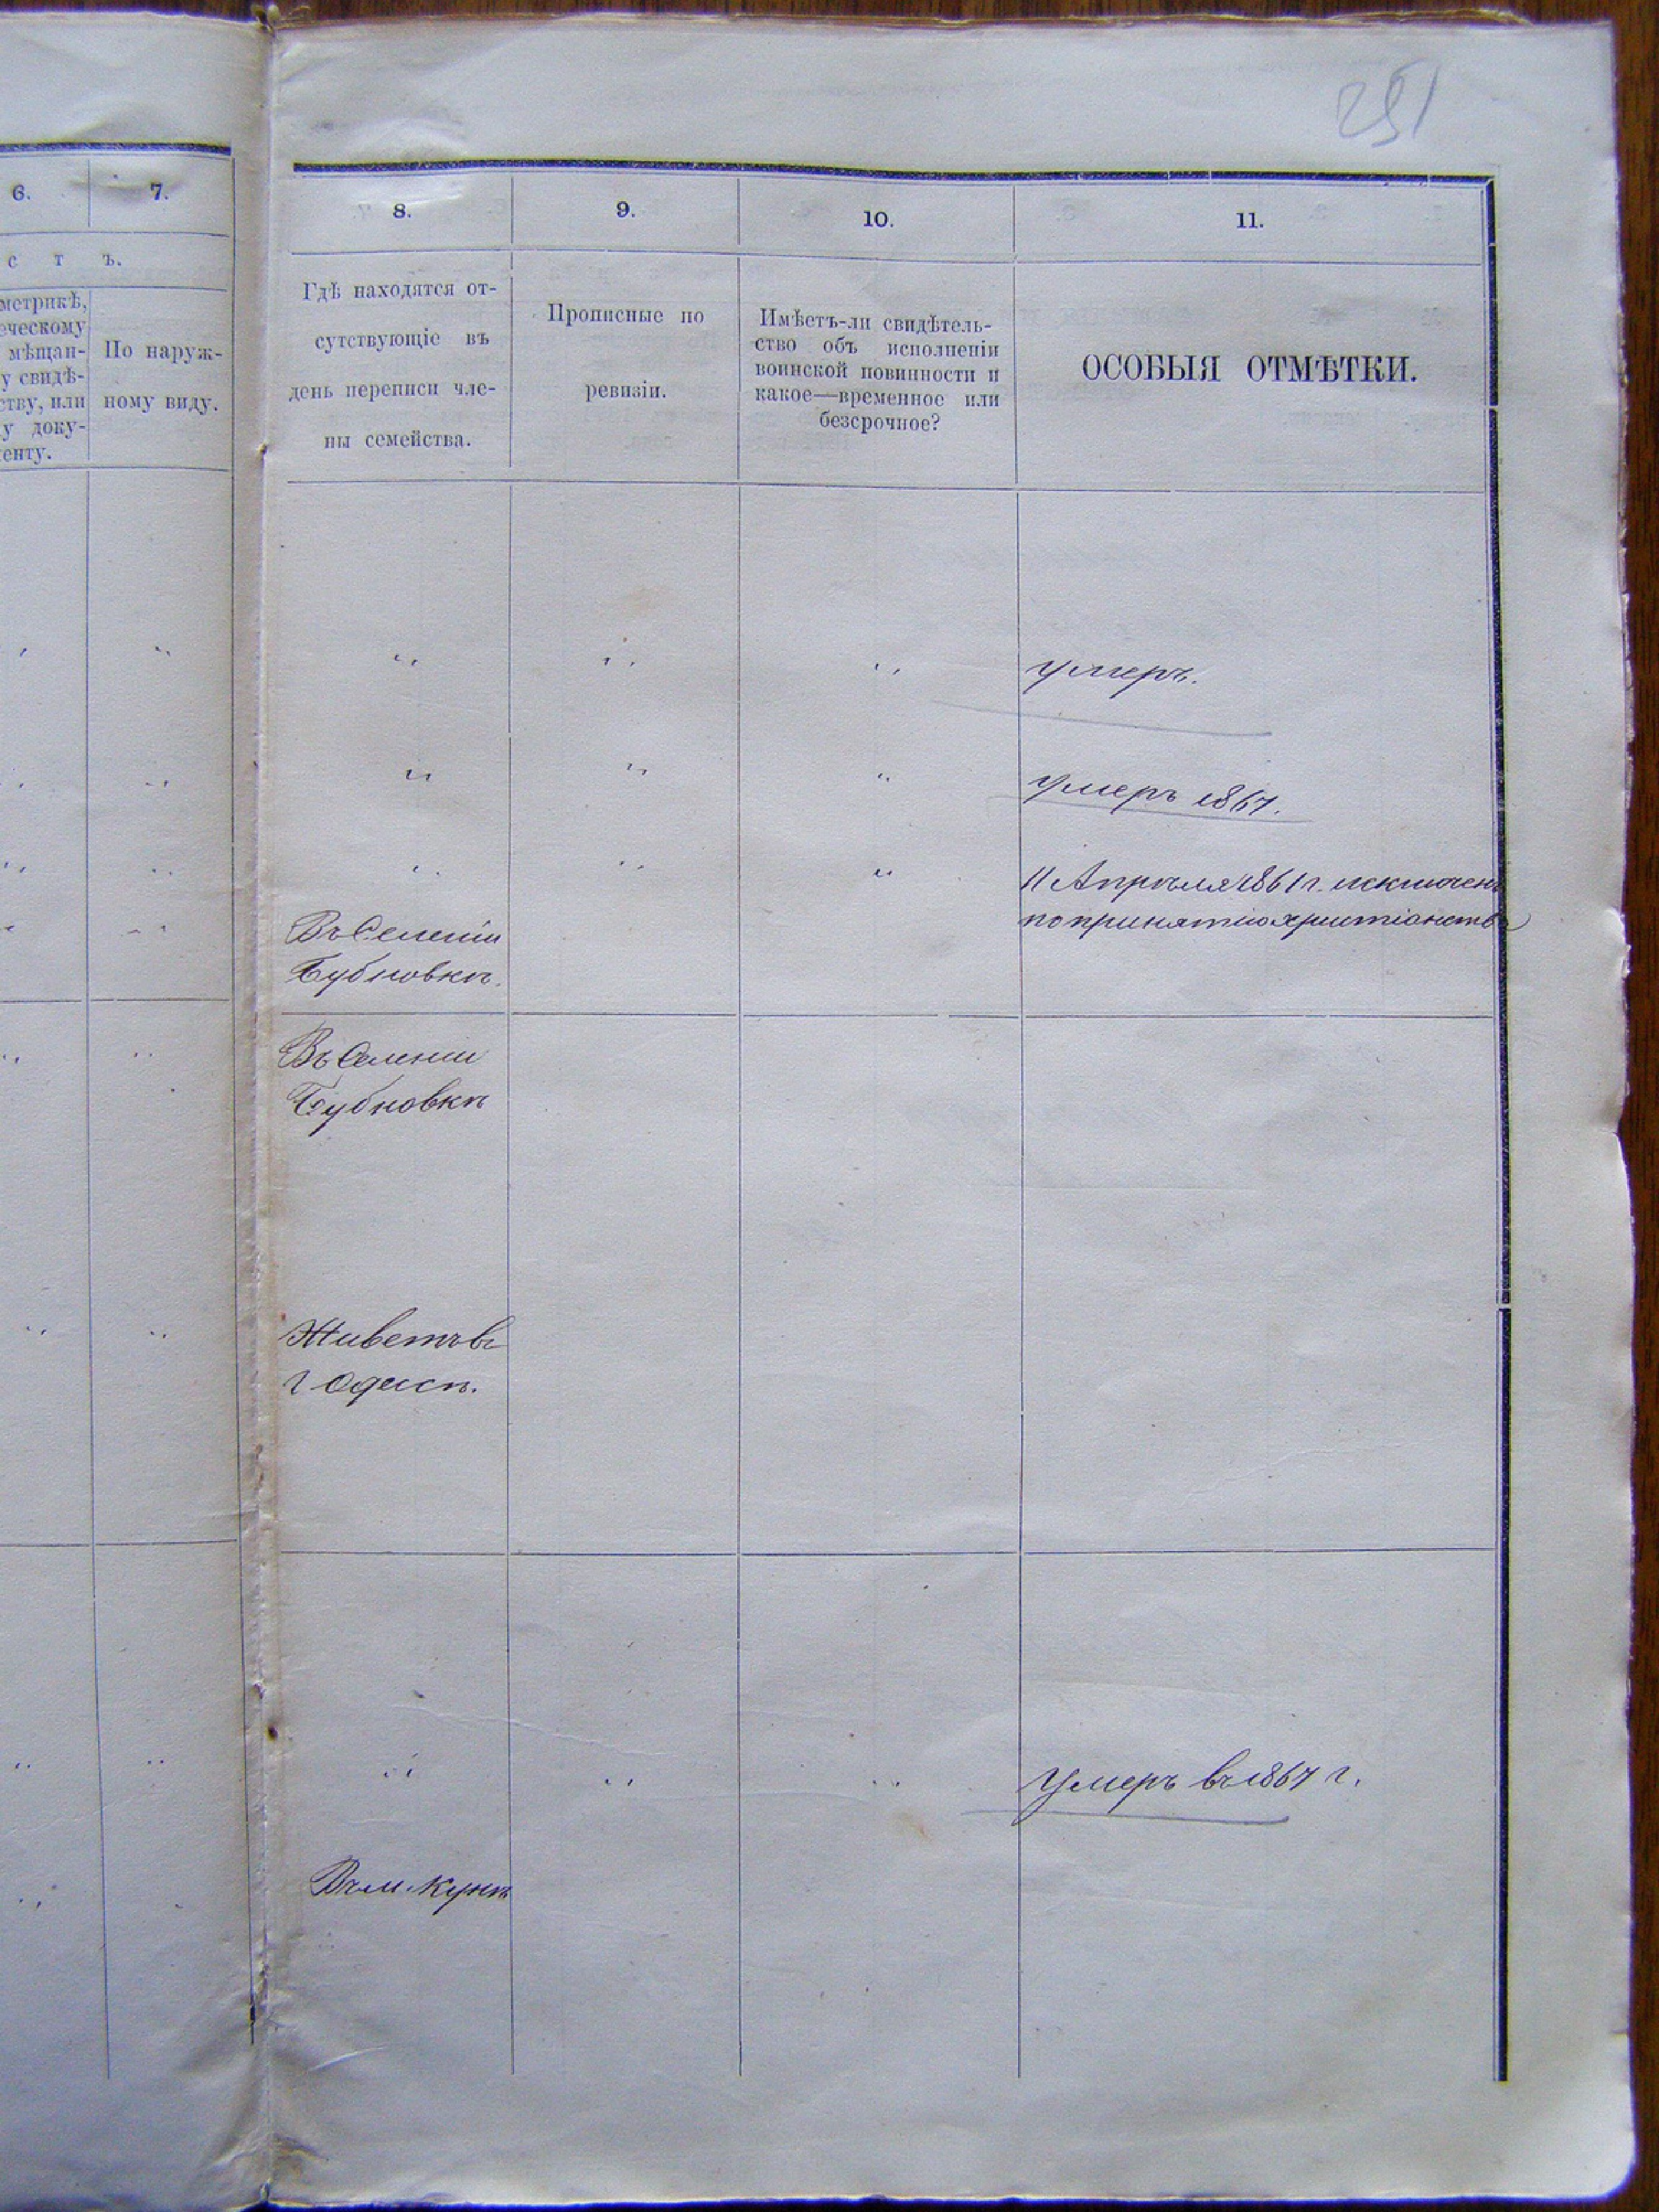 251
6.
7.
8.
9.
10.
11.
с т ъ.
метрикѣ,
ческому
мѣщан-
у свидѣ-
ству, или
у доку-
енту.
По наруж-
ному виду.
Гдѣ находятся от-
сутствующіе въ
день переписи чле-
ны семейства.
Прописные по
ревизіи.
Имѣетъ-ли свидѣтель-
ство объ исполненіи
воинской повинности и
какое—временное или
безсрочное?
ОСОБЫЯ ОТМѢТКИ.
умеръ.
умеръ 1867.
11 Апрѣля 1861 г. исключенъ
по принятію христіанства
Въ Селеніи
Бубновкѣ.
Въ Селеніи
Бубновкѣ
Живетъ въ
г Одесѣ.
Умеръ въ 1867 г.
Въ м. Кунѣ